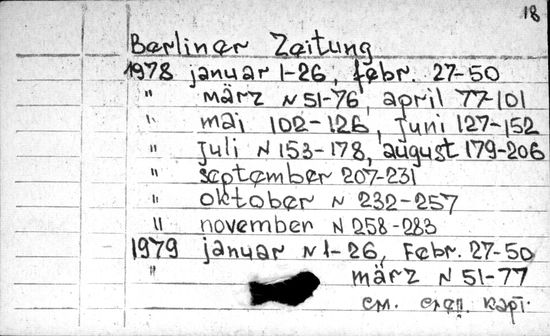 18
Berliner Zeitung
1978 januar 1-26, febr. 27-50
" märz N 51-76, april 77-101
" mai 102-126, juni 127-152
" juli N 153-178, august 179-206
" september 207-231
" oktober N 232-257
" november N 258-283
1979 januar N 1-26, Febr. 27-50
" märz N 51-77
см. след. карт.